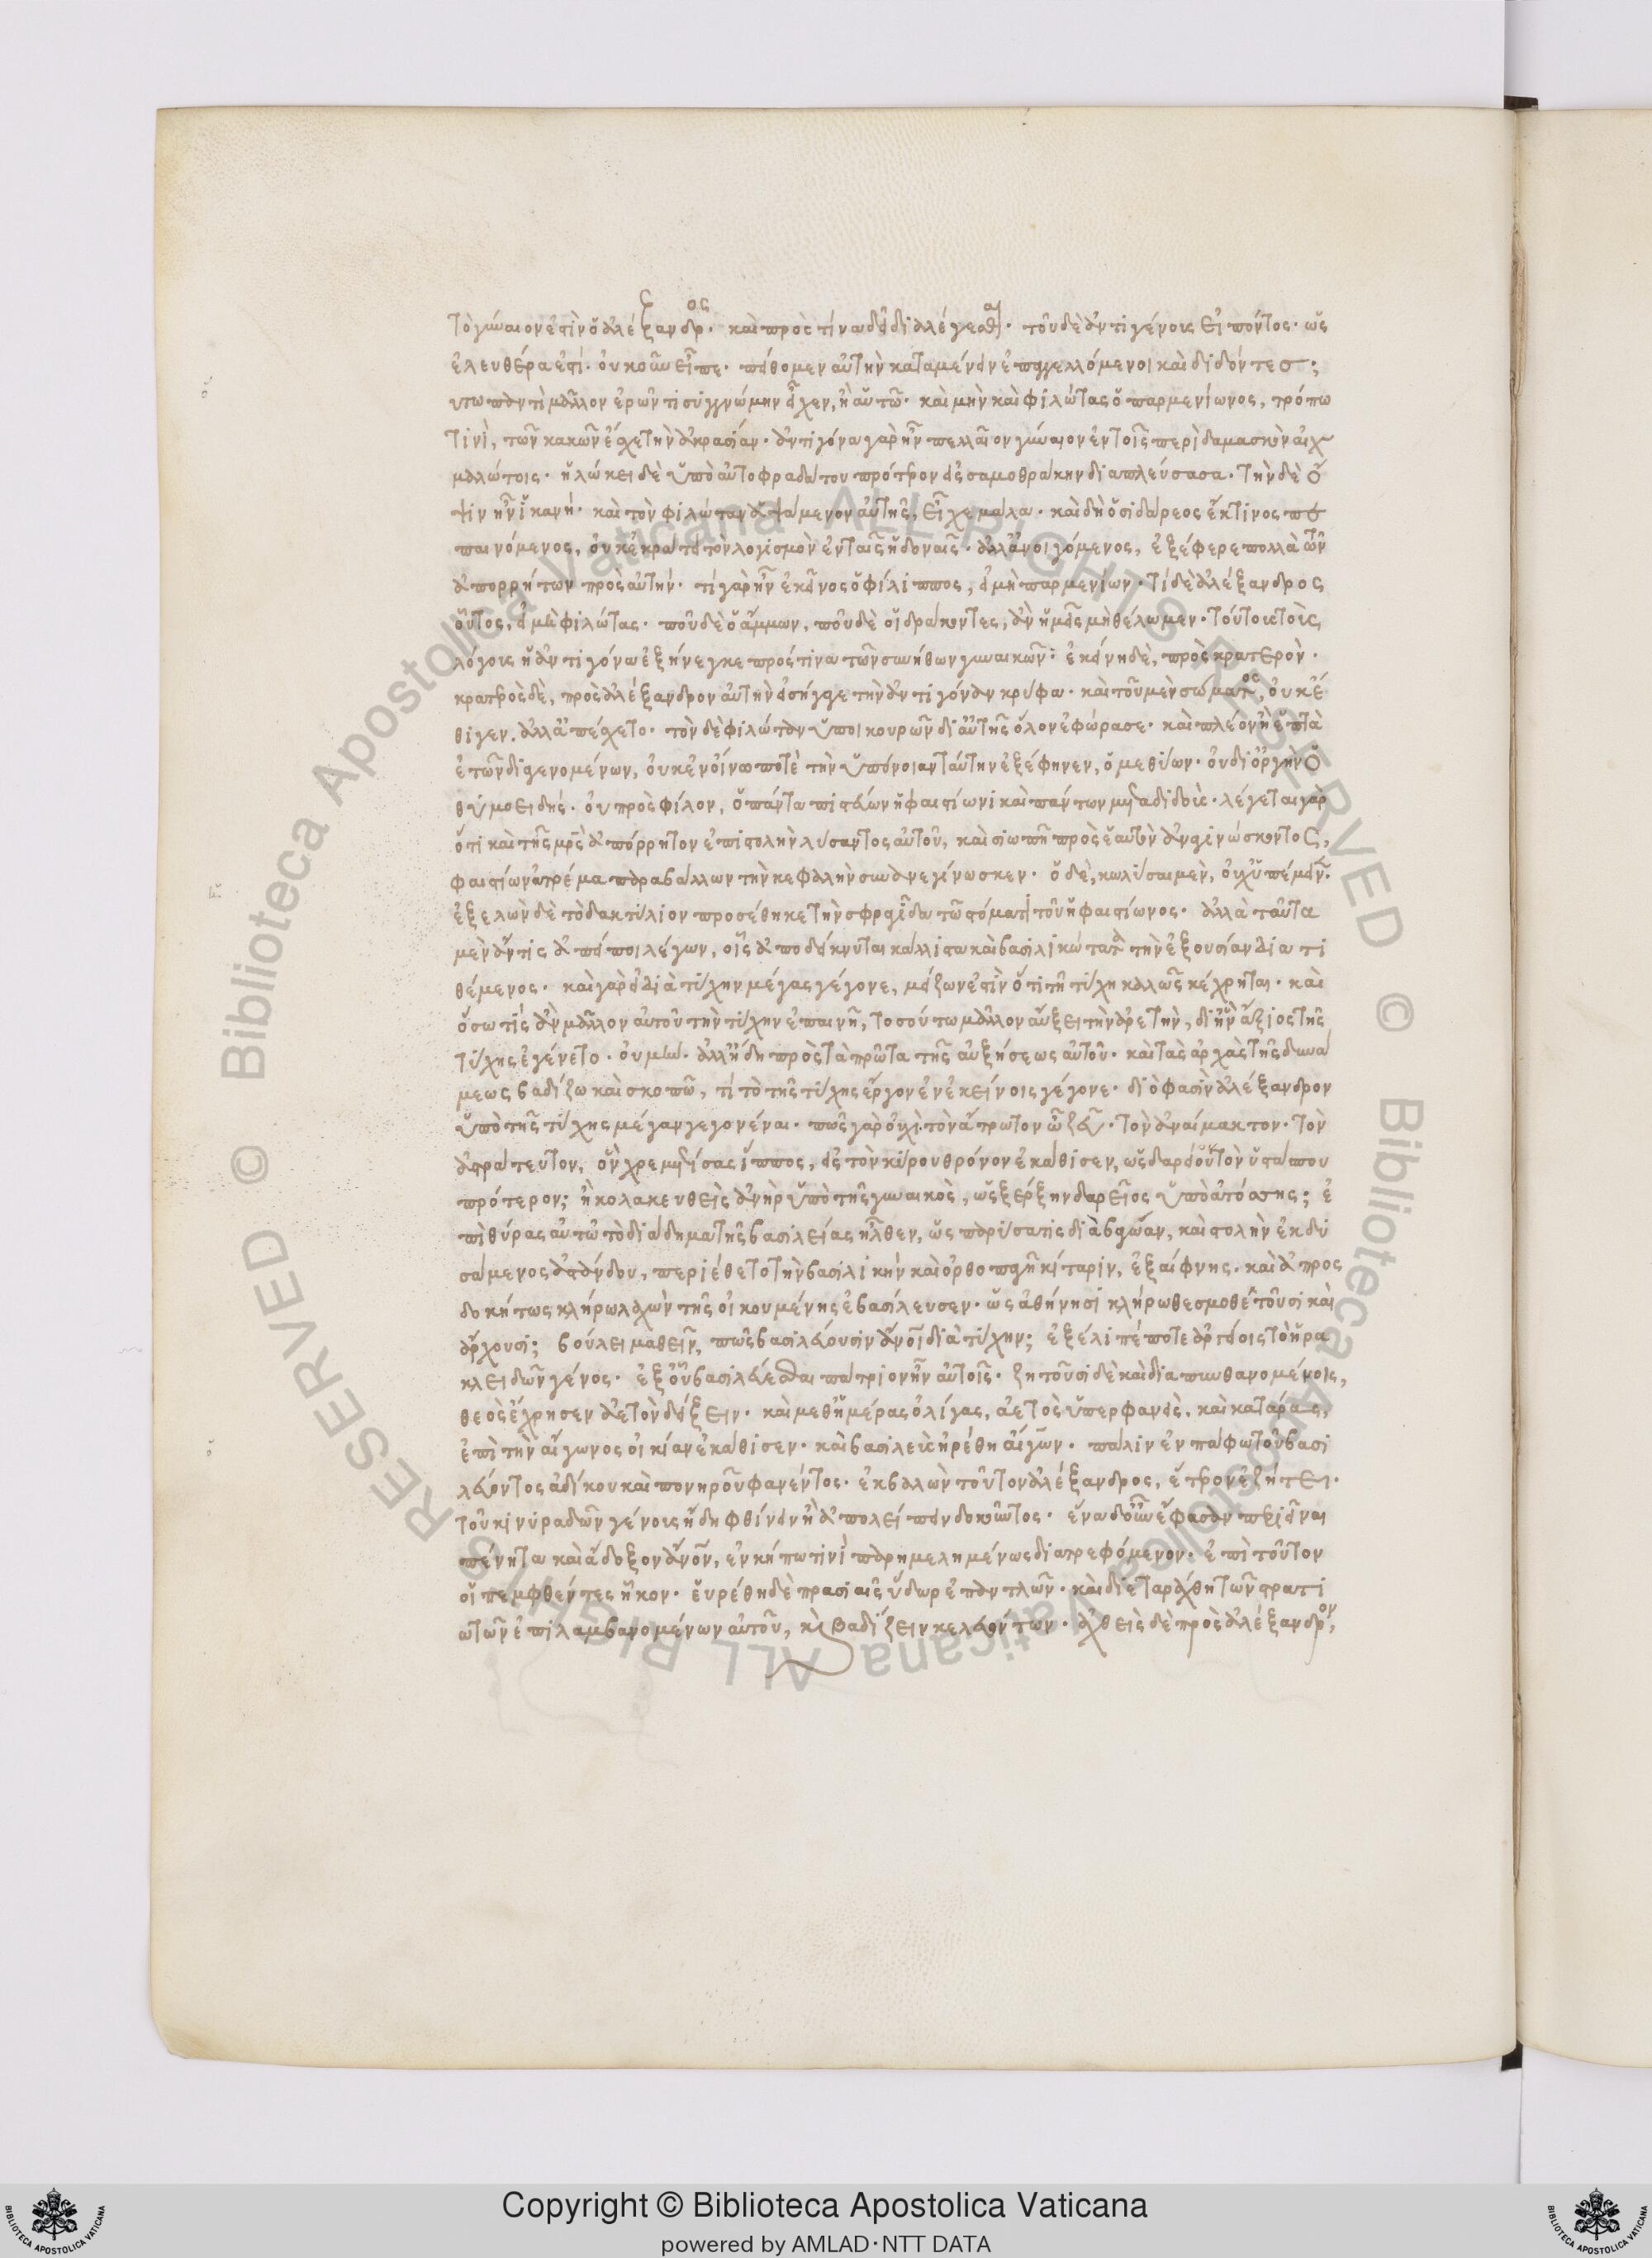 τὸ γύναιον ἐστὶν ὁ ἀλέξανδρος· καὶ πρὸς τίνα δεῖ διαλέγεσθαι· τοῦ δὲ ἀντιγένους εἰπόντος· ὡς
ἐλευθέρα ἐστί· οὐκοῦν εἶπε· πείθομεν αὐτὴν καταμένειν ἐπαγγελλόμενοι καὶ διδόντες;
οὕτω παντὶ μᾶλλον ἐρῶντι συγγνώμην εἶχεν, ἢ αὑτῶ· καὶ μὴν καὶ φιλώτας ὁ παρμενίωνος, τρόπω
τινὶ, τῶν κακῶν ἔσχε τὴν ἀκρασίαν· ἀντιγόνα γὰρ ἦν πελλαῖον γύναιον ἐν τοῖς περὶ δαμασκὸν αἰχ
μαλώτοις· ἡλώκει δὲ ὑπὸ αὐτοφραδάτου πρότερον εἰς σαμοθράκην διαπλεύσασα· τὴν δὲ ὄ
ψιν ἦν ἱκανή· καὶ τὸν φιλώταν ἁψάμενον αὐτῆς, εἶχε μάλα· καὶ δὴ ὁ σιδάρεος ἐκτινος πε
παινόμενος, οὐκ ἐκράτει τὸν λογισμὸν ἐν ταῖς ἡδοναῖς· ἀλλ' ἀνοιγόμενος, ἐξέφερε πολλὰ τῶν
ἀπορρήτων πρὸς αὐτήν· τί γὰρ ἦν ἐκεῖνος ὁ φίλιππος, εἰ μὴ παρμενίων· τί δὲ ἀλέξανδρος
οὗτος, εἰ μὴ φιλώτας· ποῦ δὲ ὁ ἄμμων, ποῦ δὲ οἱ δράκοντες, ἂν ἡμεῖς μὴ θέλωμεν· τούτους τοὺς
λόγους ἡ ἀντιγόνα ἐξήνεγκε πρός τινα τῶν συνήθων γυναικῶν· ἐκείνη δὲ, πρὸς κρατερόν·
κρατερὸς δὲ, πρὸς ἀλέξανδρον αὐτὴν εἰσήγαγε τὴν ἀντιγόναν κρύφα· καὶ τοῦ μὲν σώματος, οὐκ ἔ
θιγεν. ἀλλ' ἀπέσχετο· τὸν δὲ φιλώταν ὑποικουρῶν δι αὐτῆς ὅλον ἐφώρασε· καὶ πλέον ἢ ἑπτὰ
ἐτῶν διαγενομένων, οὐκ ἐν οἴνω ποτὲ τὴν ὑπόνοιαν ταύτην ἐξέφηνεν, ὁ μεθύων· οὐ δι ὀργὴν ὁ
θυμοειδής· οὐ πρὸς φίλον, ὁ πάντα πιστεύων ἡφαιστίωνι καὶ πάντων μεταδιδούς· λέγεται γὰρ
ὅτι καὶ τῆς μρς ἀπόρρητον ἐπιστολὴν λύσαντος αὐτοῦ, καὶ σιωπῆ πρὸς ἑαυτὸν ἀναγινώσκοντος,
ἡφαιστίων ἀτρέμα παραβάλλων τὴν κεφαλὴν συνανεγίνωσκεν· ὁ δὲ, κωλῦσαι μὲν, οὐχ ὑπέμεινεν·
ἐξελὼν δὲ τὸ δακτύλιον προσέθηκε τὴν σφραγῖδα τῶ στόματι τοῦ ἡφαιστίωνος· ἀλλὰ ταῦτα
μὲν ἄν τις ἀπείποι λέγων, οἷς ἀποδείκνυται κάλλιστα καὶ βασιλικώτατα τὴν ἐξουσίαν διατι
θέμενος· καὶ γὰρ εἰ διὰ τύχην μέγας γέγονε, μείζων ἐστὶν ὅτι τῆ τύχη καλῶς κέχρηται· καὶ
ὅσω τίς ἂν μᾶλλον αὐτοῦ τὴν τύχην ἐπαινῆ, τοσούτω μᾶλλον αὔξει τὴν ἀρετὴν, δι ἣν ἄξιος τῆς
τύχης ἐγένετο· οὐ μὴν· ἀλλ' ἤδη πρὸς τὰ πρῶτα τῆς αὐξήσεως αὐτοῦ· καὶ τὰς ἀρχὰς τῆς δυνά
μεως βαδίζω καὶ σκοπῶ, τί τὸ τῆς τύχης ἔργον ἐν ἐκείνοις γέγονε· διὸ φασὶν ἀλέξανδρον
ὑπὸ τῆς τύχης μέγαν γεγονέναι· πῶς γὰρ οὐχὶ τὸν ἄτρωτον ὦ ζεῦ· τὸν ἀναίμακτον· τὸν
ἀστράτευτον, ὃν χρεμετίσας ἵππος, εἰς τὸν κύρου θρόνον ἐκάθισεν, ὡς δαρεῖον τὸν ὑστάσπου
πρότερον; ἢ κολακευθεὶς ἀνὴρ ὑπὸ τῆς γυναικὸς, ὡς ξέρξην δαρεῖος ὑπὸ ἀτόσσης; ἐ
πὶ θύρας αὐτῶ τὸ διάδημα τῆς βασιλείας ἦλθεν, ὡς παρύσατις διὰ βαγώαν, καὶ στολὴν ἐκδυ
σάμενος ἀστάνδου, περιέθετο τὴν βασιλικὴν καὶ ὀρθοπαγῆ κίταριν, ἐξαίφνης· καὶ ἀπροσ
δοκήτως κλήρω λαχὼν τῆς οἰκουμένης ἐβασίλευσεν· ὡς ἀθήνησι κλήρω θεσμοθετοῦσι καὶ
ἄρχουσι; βούλει μαθεῖν, πῶς βασιλεύουσιν ἄνοι διὰ τύχην; ἐξέλιπέ ποτε ἀργείοις τὸ ἡρα
κλειδῶν γένος· ἐξ οὗ βασιλεύεσθαι πάτριον ἦν αὐτοῖς· ζητοῦσι δὲ καὶ διαπυνθανομένοις,
θεὸς ἔχρησεν ἀετὸν δείξειν· καὶ μεθ' ἡμέρας ὀλίγας, ἀετὸς ὑπερφανεὶς, καὶ κατάρας,
ἐπὶ τὴν αἴγωνος οἰκίαν ἐκάθισεν· καὶ βασιλεὺς ἡρέθη αἴγων· πάλιν ἐν πάφω τοῦ βασι
λεύοντος ἀδίκου καὶ πονηροῦ φανέντος· ἐκβαλὼν τοῦτον ἀλέξανδρος, ἕτερον ἐζήτει·
τοῦ κινυραδῶν γένους ἤδη φθίνειν ἢ ἀπολείπειν δοκοῦντος· ἕνα δ' οὖν ἔφασαν περιεῖναι
πένητα καὶ ἄδοξον ἄνον, ἐν κήπω τινὶ παρημελημένως διατρεφόμενον· ἐπὶ τοῦτον
οἱ πεμφθέντες ἧκον· εὑρέθη δὲ πρασιαῖς ὕδωρ ἐπαντλῶν· καὶ διεταράχθη τῶν στρατι
ωτῶν ἐπιλαμβανομένων αὐτοῦ, καὶ βαδίζειν κελευόντων· ἀχθεὶς δὲ πρὸς ἀλέξανδρον,
Copyright © Biblioteca Apostolica Vaticana
powered by AMLAD·NTT DATA